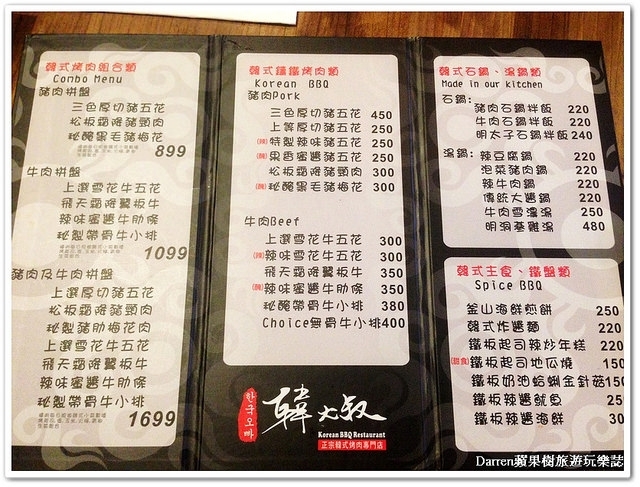 韓式烤肉組合類
Combo Menu
豬肉拼盤
三色厚切豬五花
松板霜降豬頸肉
秘醃黑毛豬梅花
899
牛肉拼盤
上選雪花牛五花
飛天霜降翼板牛
辣味蜜醬牛肋條
秘製帶骨牛小排
1099
豬肉及牛肉拼盤
上選厚切豬五花
松板霜降豬頸肉
秘製豬肋梅花肉
上選雪花牛五花
飛天霜降翼板牛
辣味蜜醬牛肋條
秘製帶骨牛小排
1699
韓式鑄鐵烤肉類
Korean BBQ
豬肉Pork
三色厚切豬五花 450
上等厚切豬五花 250
(辣)特製辣味豬五花 250
(醃)果香蜜醬豬五花 250
松板霜降豬頸肉 300
(醃)秘醃黑毛豬梅花 300
牛肉Beef
上選雪花牛五花 300
(辣)辣味雪花牛五花 300
飛天霜降翼板牛 350
(醃)辣味蜜醬牛肋條 350
秘醃帶骨牛小排 380
Choice無骨牛小排400
한국오빠
韓大叔
Korean BBQ Restaurant
正宗韓式烤肉專門店
韓式石鍋、湯鍋類
Made in our kitchen
石鍋:
豬肉石鍋拌飯 220
牛肉石鍋拌飯 220
明太子石鍋拌飯 240
湯鍋: 辣豆腐鍋 220
泡菜豬肉鍋 220
辣牛肉鍋 220
傳統大醬鍋 220
牛肉雪濃湯 250
明洞蔘雞湯 480
韓式主食、鐵盤類
Spice BBQ
釜山海鮮煎餅 250
韓式炸醬麵 220
鐵板起司辣炒年糕 220
(甜食)鐵板起司地瓜燒 150
鐵板奶油蛤蜊金針菇150
鐵板辣醬魷魚 25
鐵板辣醬海鮮 30
Darren蘋果樹旅遊玩樂誌